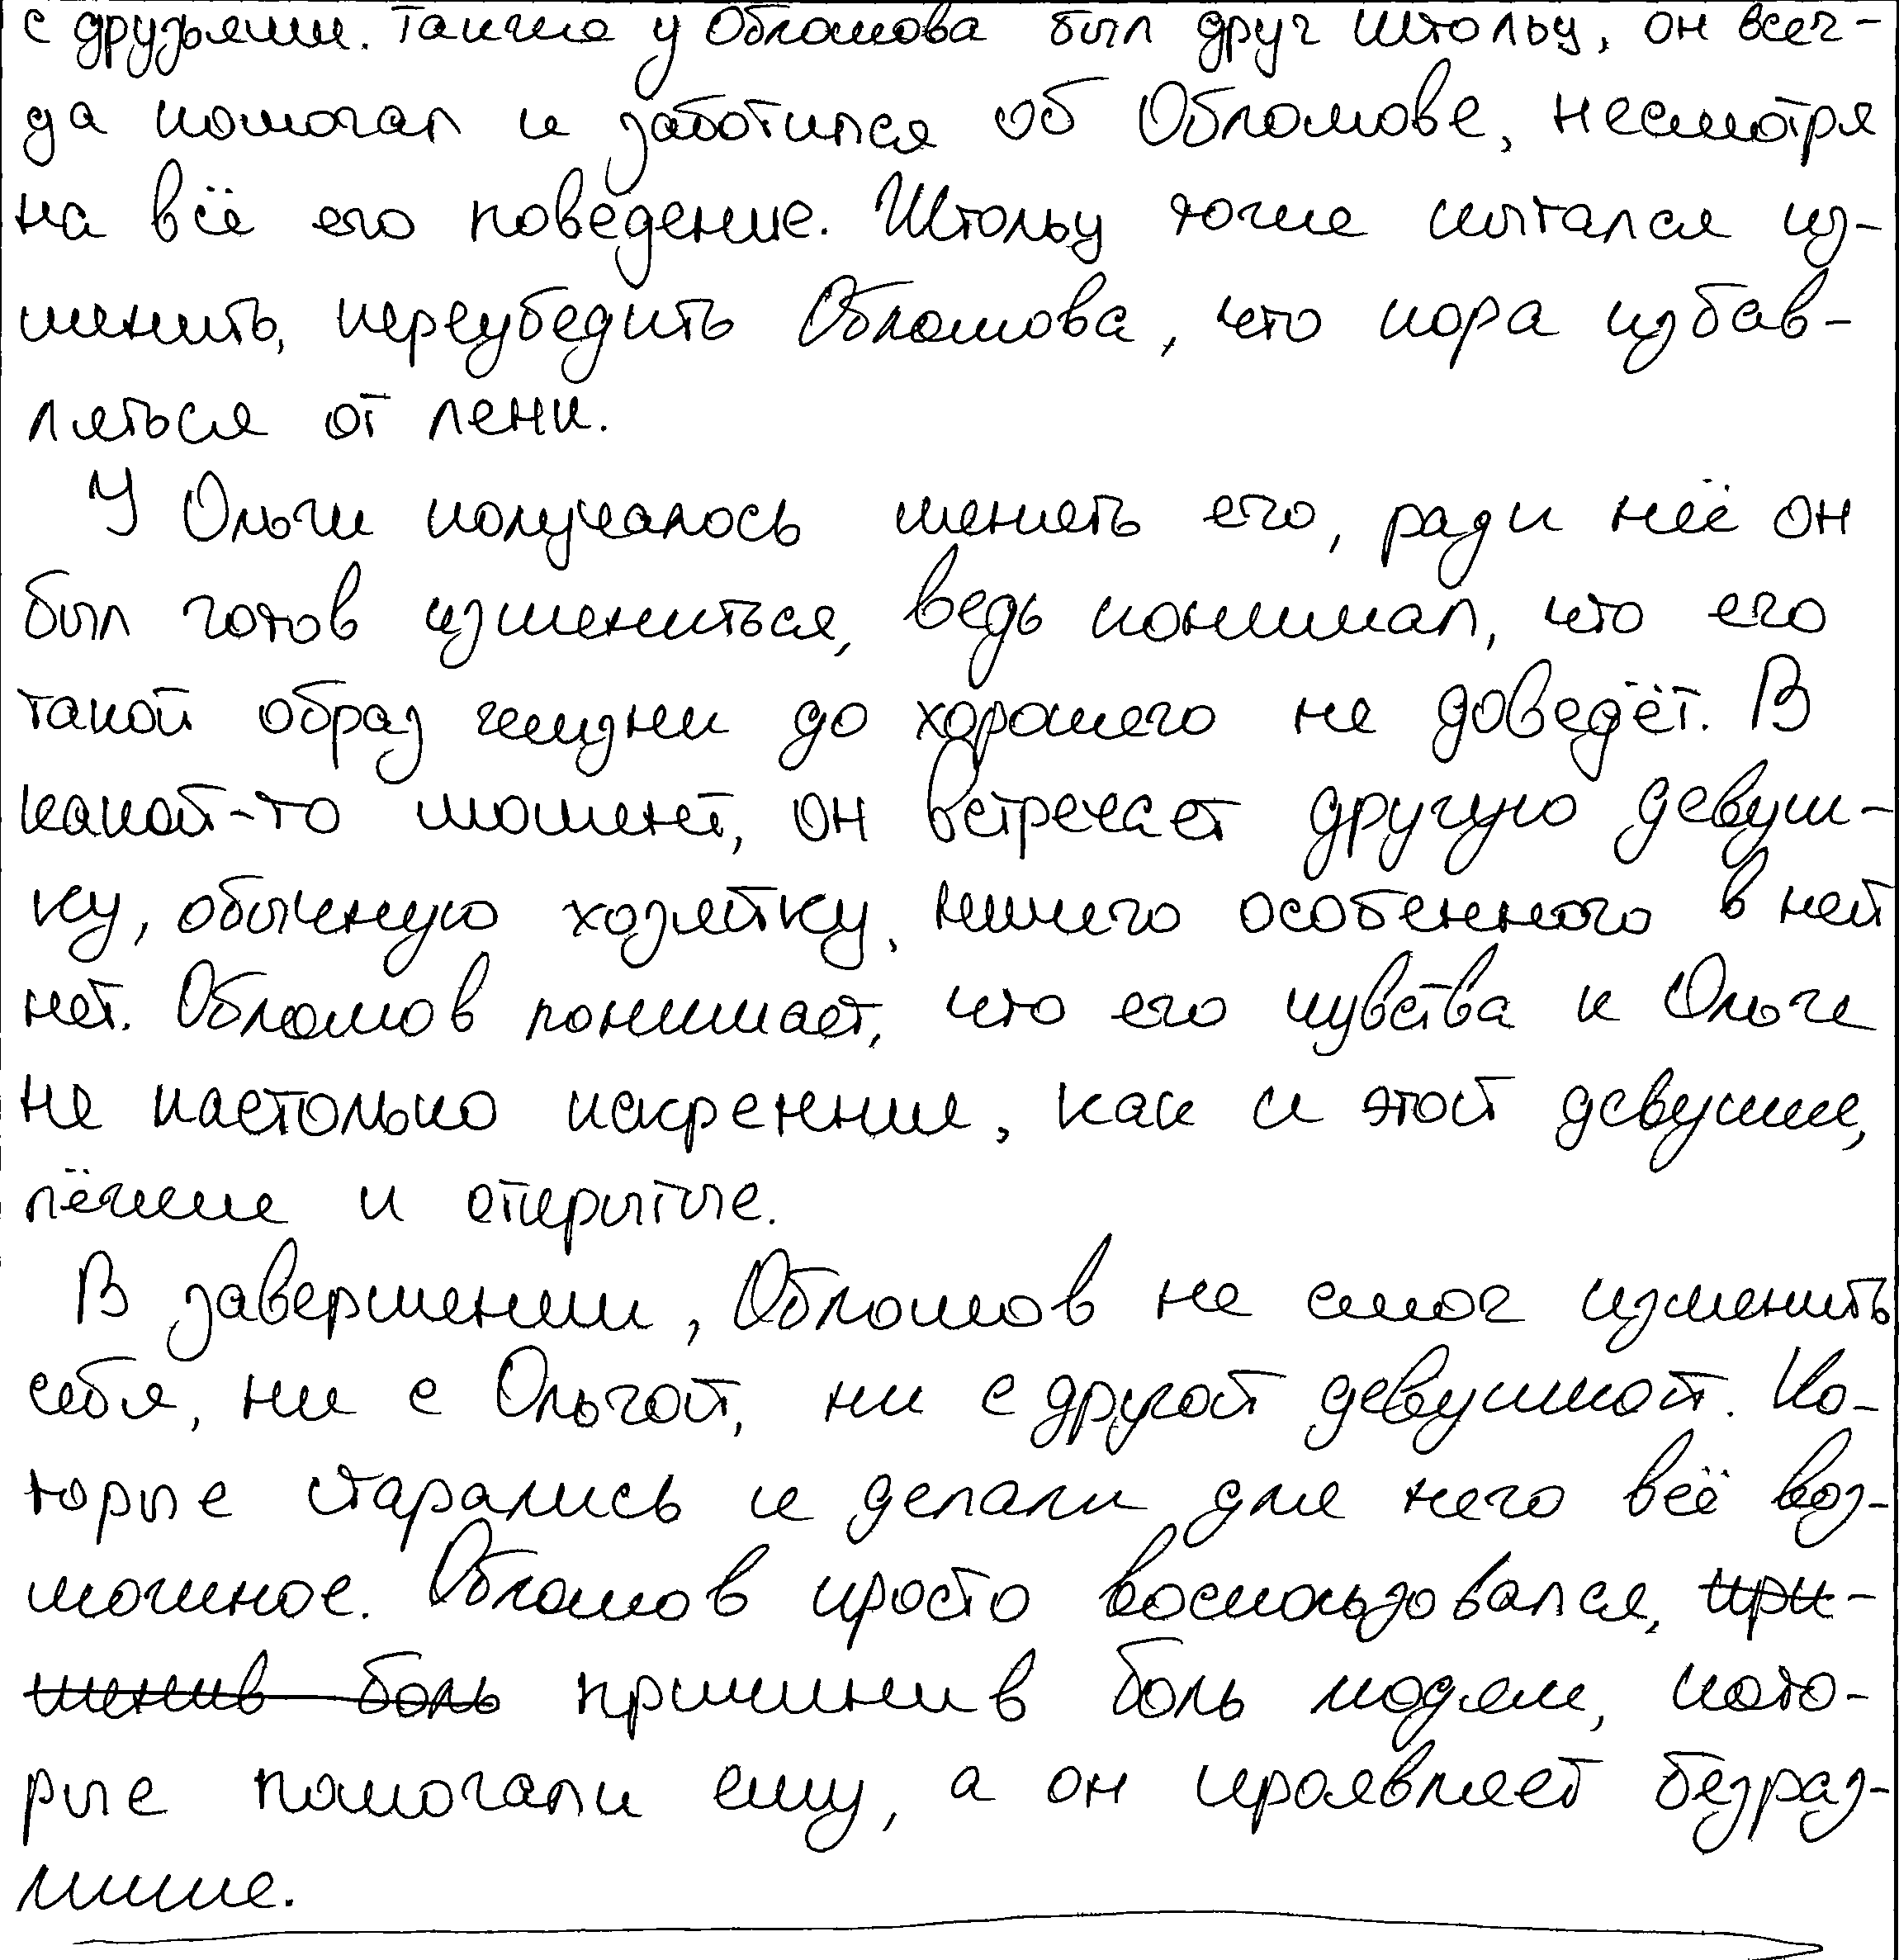 с друзьями. Также у Обломова был друг Штольц, он всег-
да помогал и заботился об Обломове, несмотря
на всё его поведение. Штольц тоже пытался из-
менить, переубедить Обломова, что пора избав-
ляться от лени.
У Ольги получалось менять его, ради неё он
был готов измениться, ведь понимал, что его
такой образ жизни до хорошего не доведёт. В
какой-то момент, он встречает другую девуш-
ку, обычную хозяйку, ничего особенного в ней
нет. Обломов понимает, что его чувства к Ольге
не настолько искренние, как к этой девушке,
лёгкие и открытые.
В завершении, Обломов не смог изменить
себя, ни с Ольгой, ни с другой девушкой. Ко-
торые старались и делали для него всё воз-
можное. Обломов просто воспользовался, при-
чинив боль причинив боль людям, кото-
рые помогали ему, а он проявляет безраз-
личие.